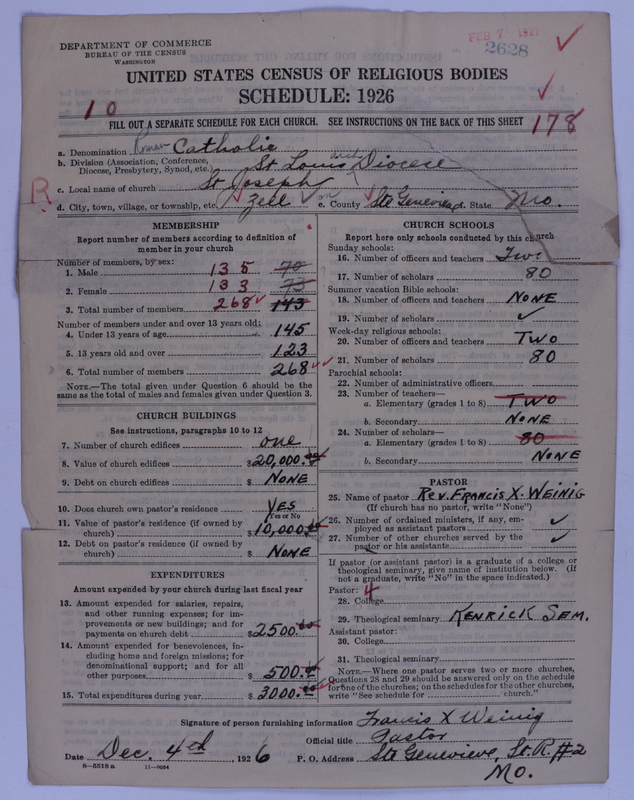 DEPARTMENT OF COMMERCE
BUREAU OF THE CENSUS
WASHINGTON
FEB 7 1927
2628
UNITED STATES CENSUS OF RELIGIOUS BODIES
SCHEDULE: 1926
10
FILL OUT A SEPARATE SCHEDULE FOR EACH CHURCH. SEE INSTRUCTIONS ON THE BACK OF THIS SHEET
178
a. Denomination Roman Catholic
b. Division (Association, Conference, Diocese, Presbytery, Synod, etc.) St Louis arch Diocese
R
c. Local name of church St Joseph
d. City, town, village, or township, etc. Zell e. County Ste Genevieve f. State Mo.
MEMBERSHIP
Report number of members according to definition of member in your church
Number of members, by sex:
1. Male 135 70
2. Female 133 73
3. Total number of members 268 143
Number of members under and over 13 years old:
4. Under 13 years of age 145
5. 13 years old and over 123
6. Total number of members 268
NOTE.—The total given under Question 6 should be
same as the total of males and females given under Question 3.
CHURCH BUILDINGS
See instructions, paragraphs 10 to 12
7. Number of church edifices one
8. Value of church edifices $20,000.00
9. Debt on church edifices $ NONE
10. Does church own pastor's residence YES
Yes or No
11. Value of pastor's residence (if owned by
church) $10,000.00
12. Debt on pastor's residence (if owned by
church) $ NONE
EXPENDITURES
Amount expended by your church during last fiscal year
13. Amount expended for salaries, repairs,
and other running expenses; for im-
provements or new buildings; and for
payments on church debt $2500.00
14. Amount expended for benevolences, in-
cluding home and foreign missions; for
denominational support; and for all
other purposes $500.00
15. Total expenditures during year $3000.00
CHURCH SCHOOLS
Report here only schools conducted by this church
Sunday schools:
16. Number of officers and teachers Two
17. Number of scholars 80
Summer vacation Bible schools:
18. Number of officers and teachers NONE
19. Number of scholars ✓
Week-day religious schools:
20. Number of officers and teachers TWO
21. Number of scholars 80
Parochial schools:
22. Number of administrative officers
23. Number of teachers—
a. Elementary (grades 1 to 8) TWO
b. Secondary NONE
24. Number of scholars—
a. Elementary (grades 1 to 8) 80
b. Secondary NONE
PASTOR
25. Name of pastor REV. FRANCIS X. WEINIG
(If church has no pastor, write "None")
26. Number of ordained ministers, if any, em-
ployed as assistant pastors ✓
27. Number of other churches served by the
pastor or his assistants ✓
If pastor (or assistant pastor) is a graduate of a college or
theological seminary, give name of institution below. (If
not a graduate, write "No" in the space indicated.)
Pastor: 4
28. College
29. Theological seminary KENRICK SEM.
Assistant pastor:
30. College
31. Theological seminary
NOTE.—Where one pastor serves two or more churches,
Questions 28 and 29 should be answered only on the schedule
for one of the churches; on the schedules for the other churches,
write "See schedule for church."
Signature of person furnishing information Francis X Weinig
Official title Pastor
Date Dec. 4th, 1926 P. O. Address Ste Genevieve, St. R. #2
8—5518 a 11—9054
MO.